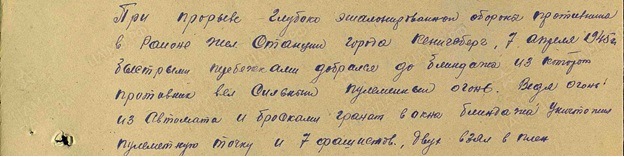 При прорыве глубоко эшалонированной обороны противника
в Районе жел Станции города Кенигсберг, 7 апреля 1945г
быстрыми перебежками добрался до блиндажа из которого
противник вел сильный пулеметный огонь. Ведя огонь
из Автомата и бросками гранат в окна блиндажа уничтожил
пулеметную точку и 7 фашистов, двух взял в плен